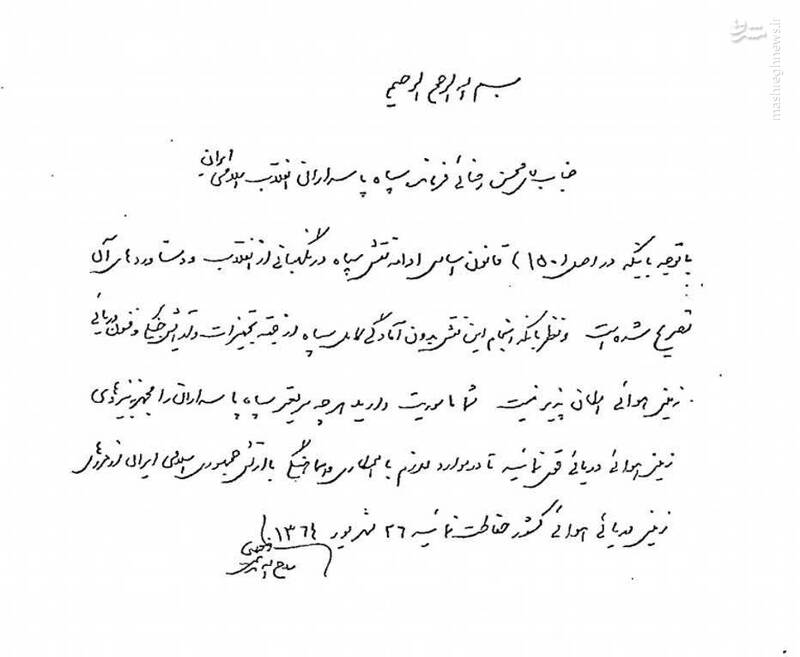 بسم الله الرحمن الرحیم
جناب آقای محسن رضائی فرمانده سپاه پاسداران انقلاب اسلامی ایران
با توجه باینکه در اصل (۱۵۰) قانون اساسی ادامه نقش سپاه در نگهبانی از انقلاب و دستاوردهای آن
تصریح شده است و نظر باینکه انجام این نقش بدون آمادگی کامل سپاه از جهت تجهیزات و فنون دریائی
زمینی هوائی امکان پذیر نیست شما ماموریت دارید هر چه سریعتر سپاه پاسداران را مجهز به نیروهای
زمینی هوائی دریائی قوی نمائید تا در موارد لازم با همکاری و هماهنگی با ارتش جمهوری اسلامی ایران از مرزهای
زمینی دریائی هوائی کشور حفاظت نمائید ۲۶ شهریور ۱۳۶۴
روح الله الموسوی الخمینی
mashreghnews.ir